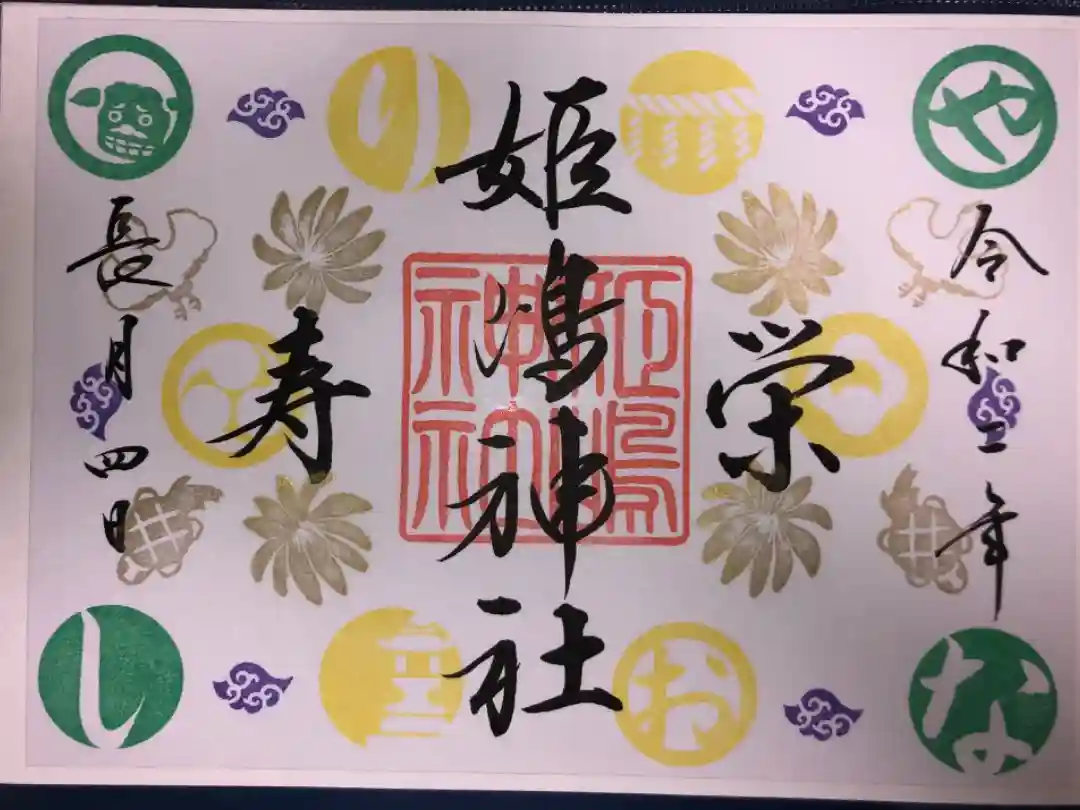 や
な
令和二年
栄
お
姫嶋神社
姫嶋神社
の
寿
長月四日
し